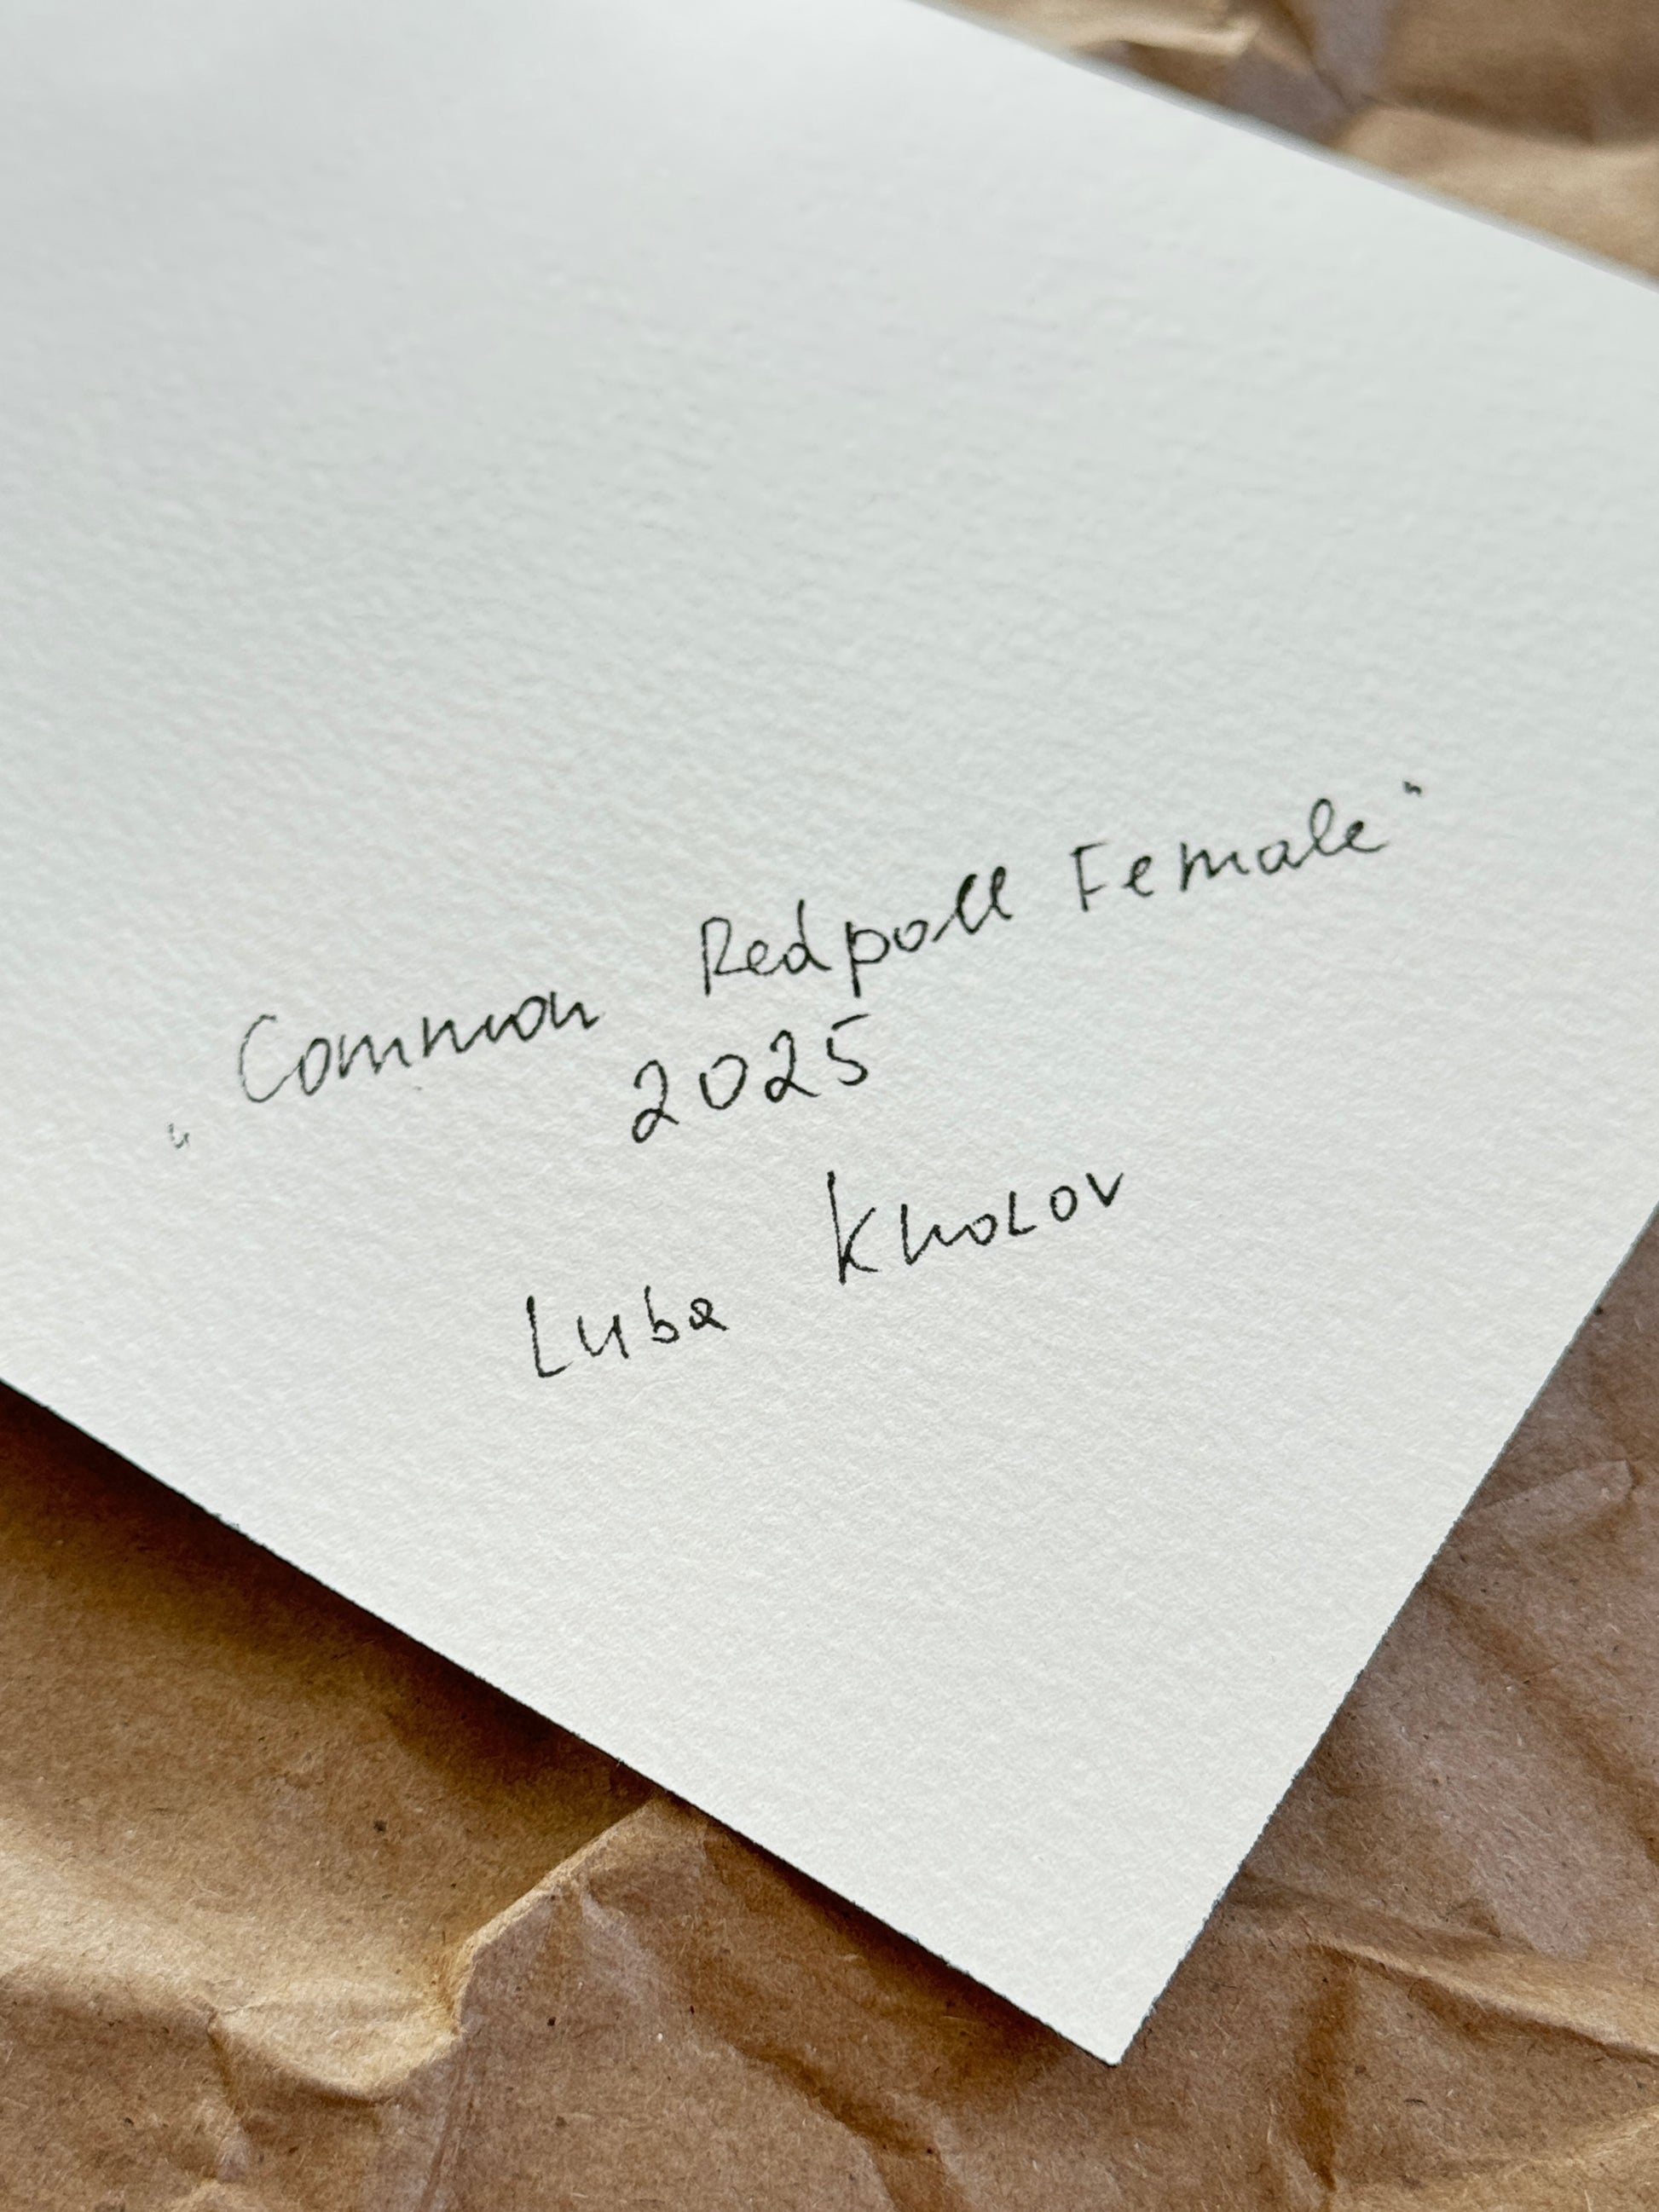 „Common Redpoll Female"
2025
Luba Kholov